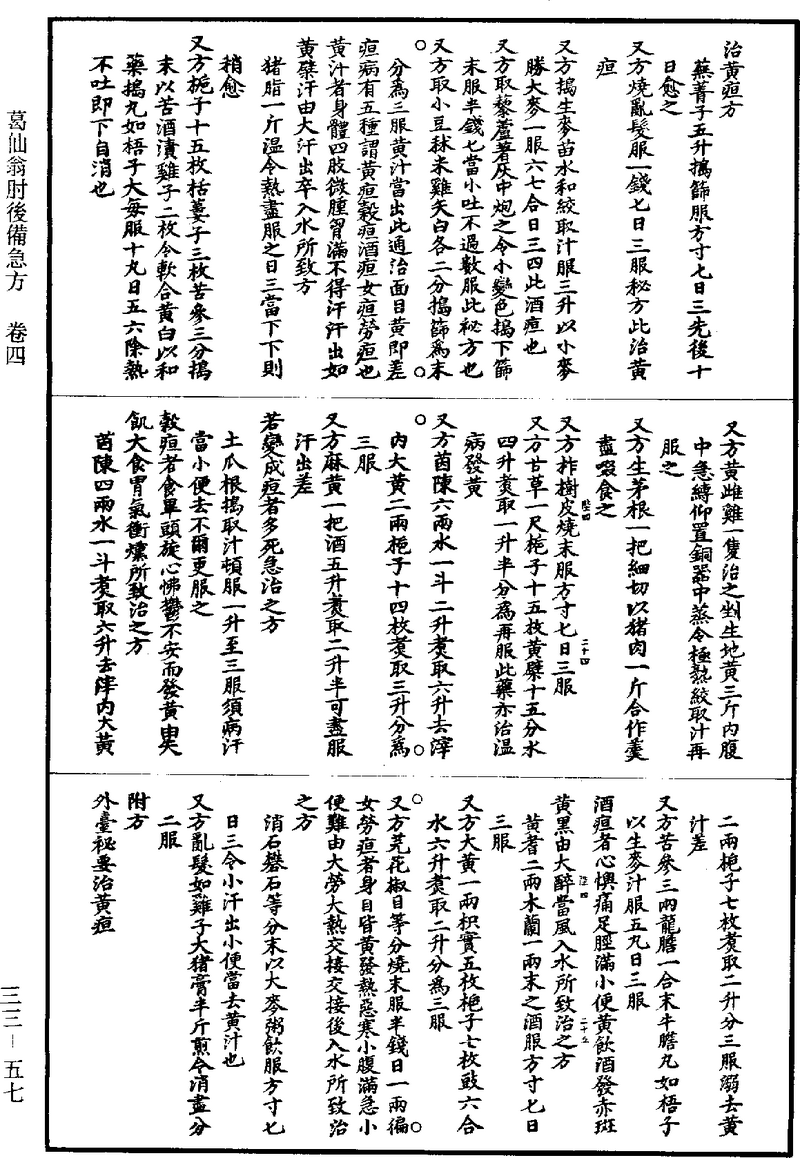 治黃疸方
蕪菁子五升搗篩服方寸匕日三先後十
日愈之
又方燒亂髮服一錢匕日三服秘方此治黃
疸
又方搗生麥苗水和絞取汁服三升以小麥
勝大麥一服六七合日三四此酒疸也
又方取藜蘆著灰中炮之令小變色搗下篩
末服半錢匕當小吐不過數服此秘方也
又方取小豆秫米雞矢白各二分搗篩爲末
分爲三服黃汁當出此通治面目黃即差
疸病有五種謂黃疸穀疸酒疸女疸勞疸也
黃汁者身體四肢微腫胷滿不得汗汗出如
黃蘗汗由大汗出卒入水所致方
猪脂一斤溫令熱盡服之日三當下下則
稍愈
又方梔子十五枚栝蔞子三枚苦參三分搗
末以苦酒漬雞子二枚令軟合黃白以和
藥搗丸如梧子大每服十丸日五六除熱
不吐即下自消也
又方黃雌雞一隻治之剉生地黃三斤內腹
中急縛仰置銅器中蒸令極熟絞取汁再
服之
又方生茅根一把細切以猪肉一斤合作羹
盡啜食之
又方柞樹皮燒末服方寸匕日三服
陸四
二十四
又方甘草一尺梔子十五枚黃蘗十五分水
四升煑取一升半分爲再服此藥亦治溫
病發黃
又方茵陳六兩水一斗二升煑取六升去滓
內大黃二兩梔子十四枚煑取三升分爲
三服
又方麻黃一把酒五升煑取二升半可盡服
汗出差
若變成疸者多死急治之方
土瓜根搗取汁頓服一升至三服須病汗
當小便去不爾更服之
穀疸者食畢頭旋心怫鬱不安而發黃由失
飢大食胃氣衝燻所致治之方
茵陳四兩水一斗煑取六升去滓內大黃
二兩梔子七枚煑取二升分三服溺去黃
汁差
又方苦參三兩龍膽一合末牛膽丸如梧子
以生麥汁服五丸日三服
酒疸者心懊痛足脛滿小便黃飲酒發赤斑
黃黑由大醉當風入水所致治之方
陸四
二十五
黃耆二兩木蘭一兩末之酒服方寸匕日
三服
又方大黃一兩枳實五枚梔子七枚豉六合
水六升煑取二升分爲三服
又方芫花椒目等分燒末服半錢日一兩徧
女勞疸者身目皆黃發熱惡寒小腹滿急小
便難由大勞大熱交接交接後入水所致治
之方
消石礬石等分末以大麥粥飲服方寸匕
日三令小汗出小便當去黃汁也
又方亂髮如雞子大猪膏半斤煎令消盡分
二服
附方
外臺祕要治黃疸
葛仙翁肘後備急方　卷四
三三－五七